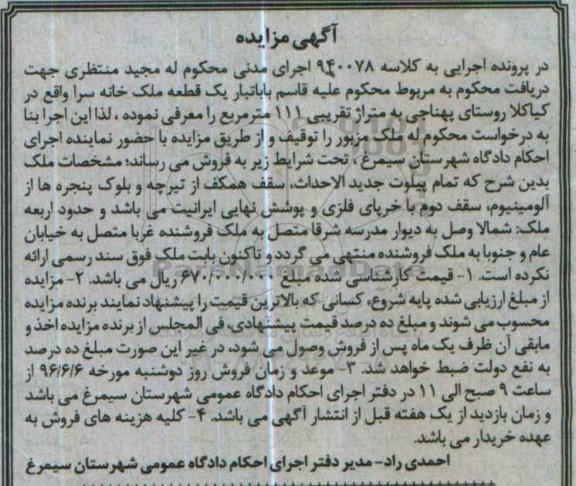 آگهی مزایده
در پرونده اجرایی به کلاسه ۹۴۰۰۷۸ اجرای مدنی محکوم له مجید منتظری جهت
دریافت محکوم به مربوط محکوم علیه قاسم باباتبار یک قطعه ملک خانه سرا واقع در
کیاکلا روستای پهناچی به متراژ تقریبی ۱۱۱ مترمربع را معرفی نموده ، لذا این اجرا بنا
به درخواست محکوم له ملک مزبور را توقیف و از طریق مزایده با حضور نماینده اجرای
احکام دادگاه شهرستان سیمرغ ، تحت شرایط زیر به فروش می رساند؛ مشخصات ملک
بدین شرح که تمام پیلوت جدید الاحداث، سقف همکف از تیرچه و بلوک پنجره ها از
آلومینیوم، سقف دوم با خرپای فلزی و پوشش نهایی ایرانیت می باشد و حدود اربعه
ملک: شمالا وصل به دیوار مدرسه شرقا متصل به ملک فروشنده غربا متصل به خیابان
عام و جنوبا به ملک فروشنده منتهی می گردد و تاکنون بابت ملک فوق سند رسمی ارائه
نکرده است. ۱- قیمت کارشناسی شده مبلغ ۶۷۰/۰۰۰/۰۰۰ ریال می باشد. ۲- مزایده
از مبلغ ارزیابی شده پایه شروع، کسانی که بالاترین قیمت را پیشنهاد نمایند برنده مزایده
محسوب می شوند و مبلغ ده درصد قیمت پیشنهادی، فی المجلس از برنده مزایده اخذ و
مابقی آن ظرف یک ماه پس از فروش وصول می شود، در غیر این صورت مبلغ ده درصد
به نفع دولت ضبط خواهد شد. ۳- موعد و زمان فروش روز دوشنبه مورخه ۹۶/۶/۶ از
ساعت ۹ صبح الی ۱۱ در دفتر اجرای احکام دادگاه عمومی شهرستان سیمرغ می باشد
و زمان بازدید از یک هفته قبل از انتشار آگهی می باشد. ۴- کلیه هزینه های فروش به
عهده خریدار می باشد.
احمدی راد- مدیر دفتر اجرای احکام دادگاه عمومی شهرستان سیمرغ